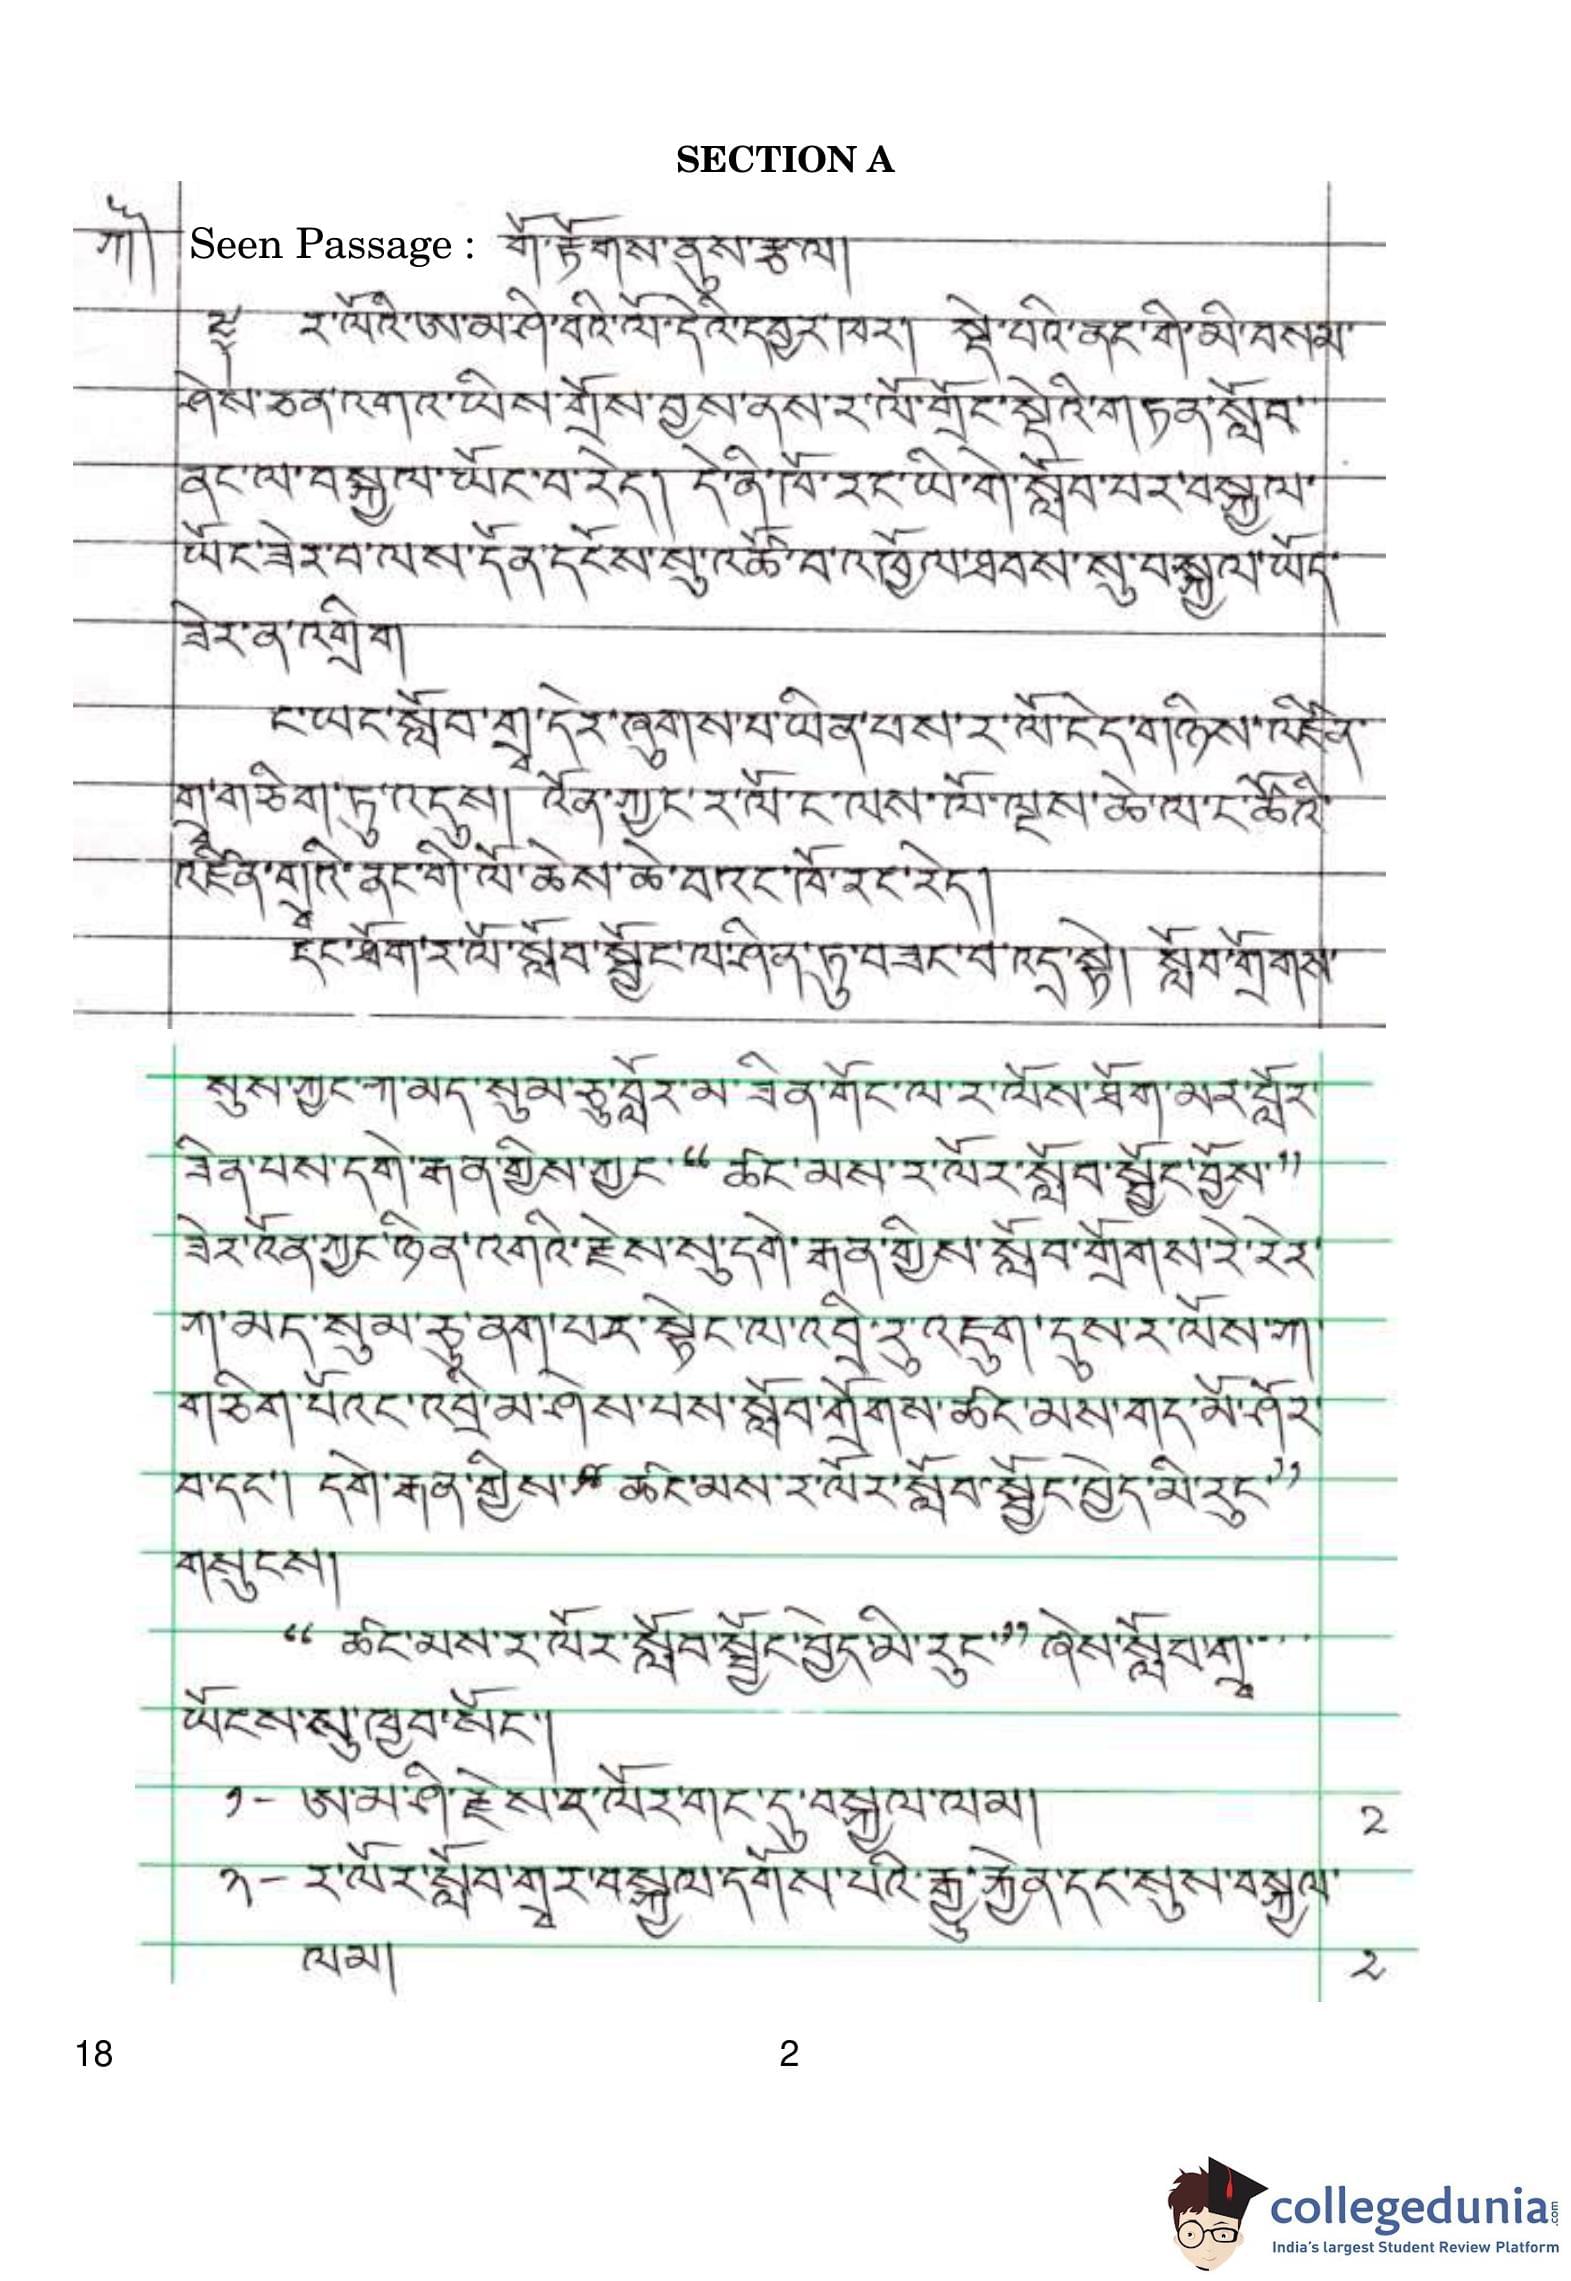 SECTION A
ཀ༽ Seen Passage : གོ་རྟོགས་ནུས་རྩལ།
༡༽ ར་ལོའི་ཨ་མ་ཤི་བའི་ལོ་དེའི་དབྱར་ཁར། སྡེ་བའི་ནང་གི་མི་བསམ་
ཤེས་ཅན་འགའ་ཡིས་གྲོས་བྱས་ནས་ར་ལོ་གྲོང་སྡེའི་གཏན་སློབ་
ནང་ལ་བསྐྱལ་ཡོང་བ་རེད། དེ་ནི་ཁོ་རང་ཡི་གེ་སློབ་པར་བསྐྱལ་
ཡོང་ཟེར་བ་ལས་དོན་དངོས་སུ་འཚོ་བ་འཁྱོལ་ཐབས་སུ་བསྐྱལ་ཡོད་
ཟེར་ན་འགྲིག
ང་ཡང་སློབ་གྲྭ་དེར་ཞུགས་པ་ཡིན་པས་ར་ལོ་ངེད་གཉིས་འཛིན་
གྲྭ་གཅིག་ཏུ་འདུས། འོན་ཀྱང་ར་ལོ་ང་ལས་ལོ་ལྔས་ཆེ་ལ་ང་ཚོའི་
འཛིན་གྲྭའི་ནང་གི་ལོ་ཆེས་ཆེ་བ་འང་ཁོ་རང་རེད།
དང་ཐོག་ར་ལོ་སློབ་སྦྱོང་ལ་ཤིན་ཏུ་བཟང་བ་འདྲ་སྟེ། སློབ་གྲོགས་
སུས་ཀྱང་ཀ་མད་སུམ་ཅུ་བློར་མ་ཟིན་གོང་ལ་ར་ལོས་ཐོག་མར་བློར་
ཟིན་པས་དགེ་རྒན་གྱིས་ཀྱང་“ ཚང་མས་ར་ལོར་སློབ་སྦྱོང་བྱོས་”
ཟེར་འོན་ཀྱང་ཉིན་འགའི་རྗེས་སུ་དགེ་རྒན་གྱིས་སློབ་གྲོགས་རེ་རེར་
ཀ་མད་སུམ་ཅུ་ནག་པང་སྟེང་ལ་འབྲི་རུ་འཇུག་དུས་ར་ལོས་ཀ་
གཅིག་པོའང་འབྲི་མ་ཤེས་པས་སློབ་གྲོགས་ཚང་མས་གད་མོ་ཤོར་
བ་དང་། དགེ་རྒན་གྱིས་“ ཚང་མས་ར་ལོར་སློབ་སྦྱོང་བྱེད་མི་རུང་”
གསུངས།
“ ཚང་མས་ར་ལོར་སློབ་སྦྱོང་བྱེད་མི་རུང་” ཞེས་སློབ་གྲྭ་་་་
ཡོངས་སུ་ཁྱབ་སོང་།
༡- ཨ་མ་ཤི་རྗེས་ར་ལོར་གང་དུ་བསྐྱལ་ལམ། 2
༢- ར་ལོར་སློབ་གྲྭར་བསྐྱལ་དགོས་པའི་རྒྱུ་རྐྱེན་དང་སུས་བསྐྱལ་
ལམ། 2
18 2
collegedunia.com
India's largest Student Review Platform